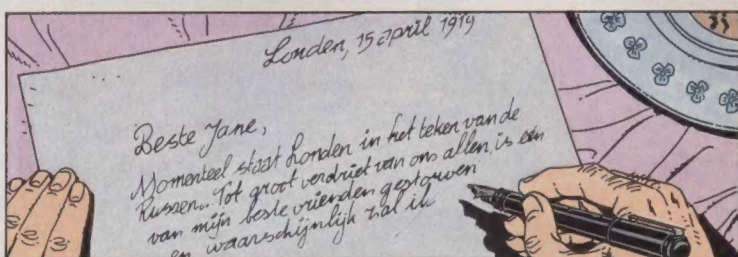 Londen, 15 april 1919
Beste Jane,
Momenteel staat Londen in het teken van de
Russen.. Tot groot verdriet van ons allen, is een
van mijn beste vrienden gestorven
en waarschijnlijk zal ik